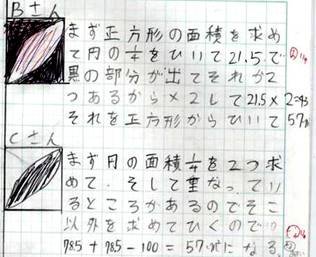 Bさん
まず正方形の面積を求め
て円の1/4をひいて21.5で
黒の部分が出てそれが2
つあるから×2して21.5×2=43
それを正方形からひいて57
Cさん
まず円の面積1/4を2つ求
めて、そして重なってい
るところがあるのでそこ
以外を求めてひくので
78.5+78.5-100=57 になる。